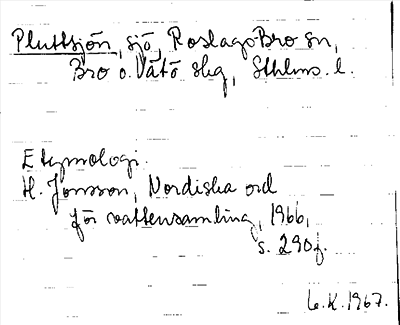 Pluttsjön, sjö, Roslags-Bro sn,
Bro o. Vätö skg, Sthlms. l.
Etymologi.
H. Jonsson, Nordiska ord
för vattensamling, 1966,
s. 290 f.
G.K. 1967.